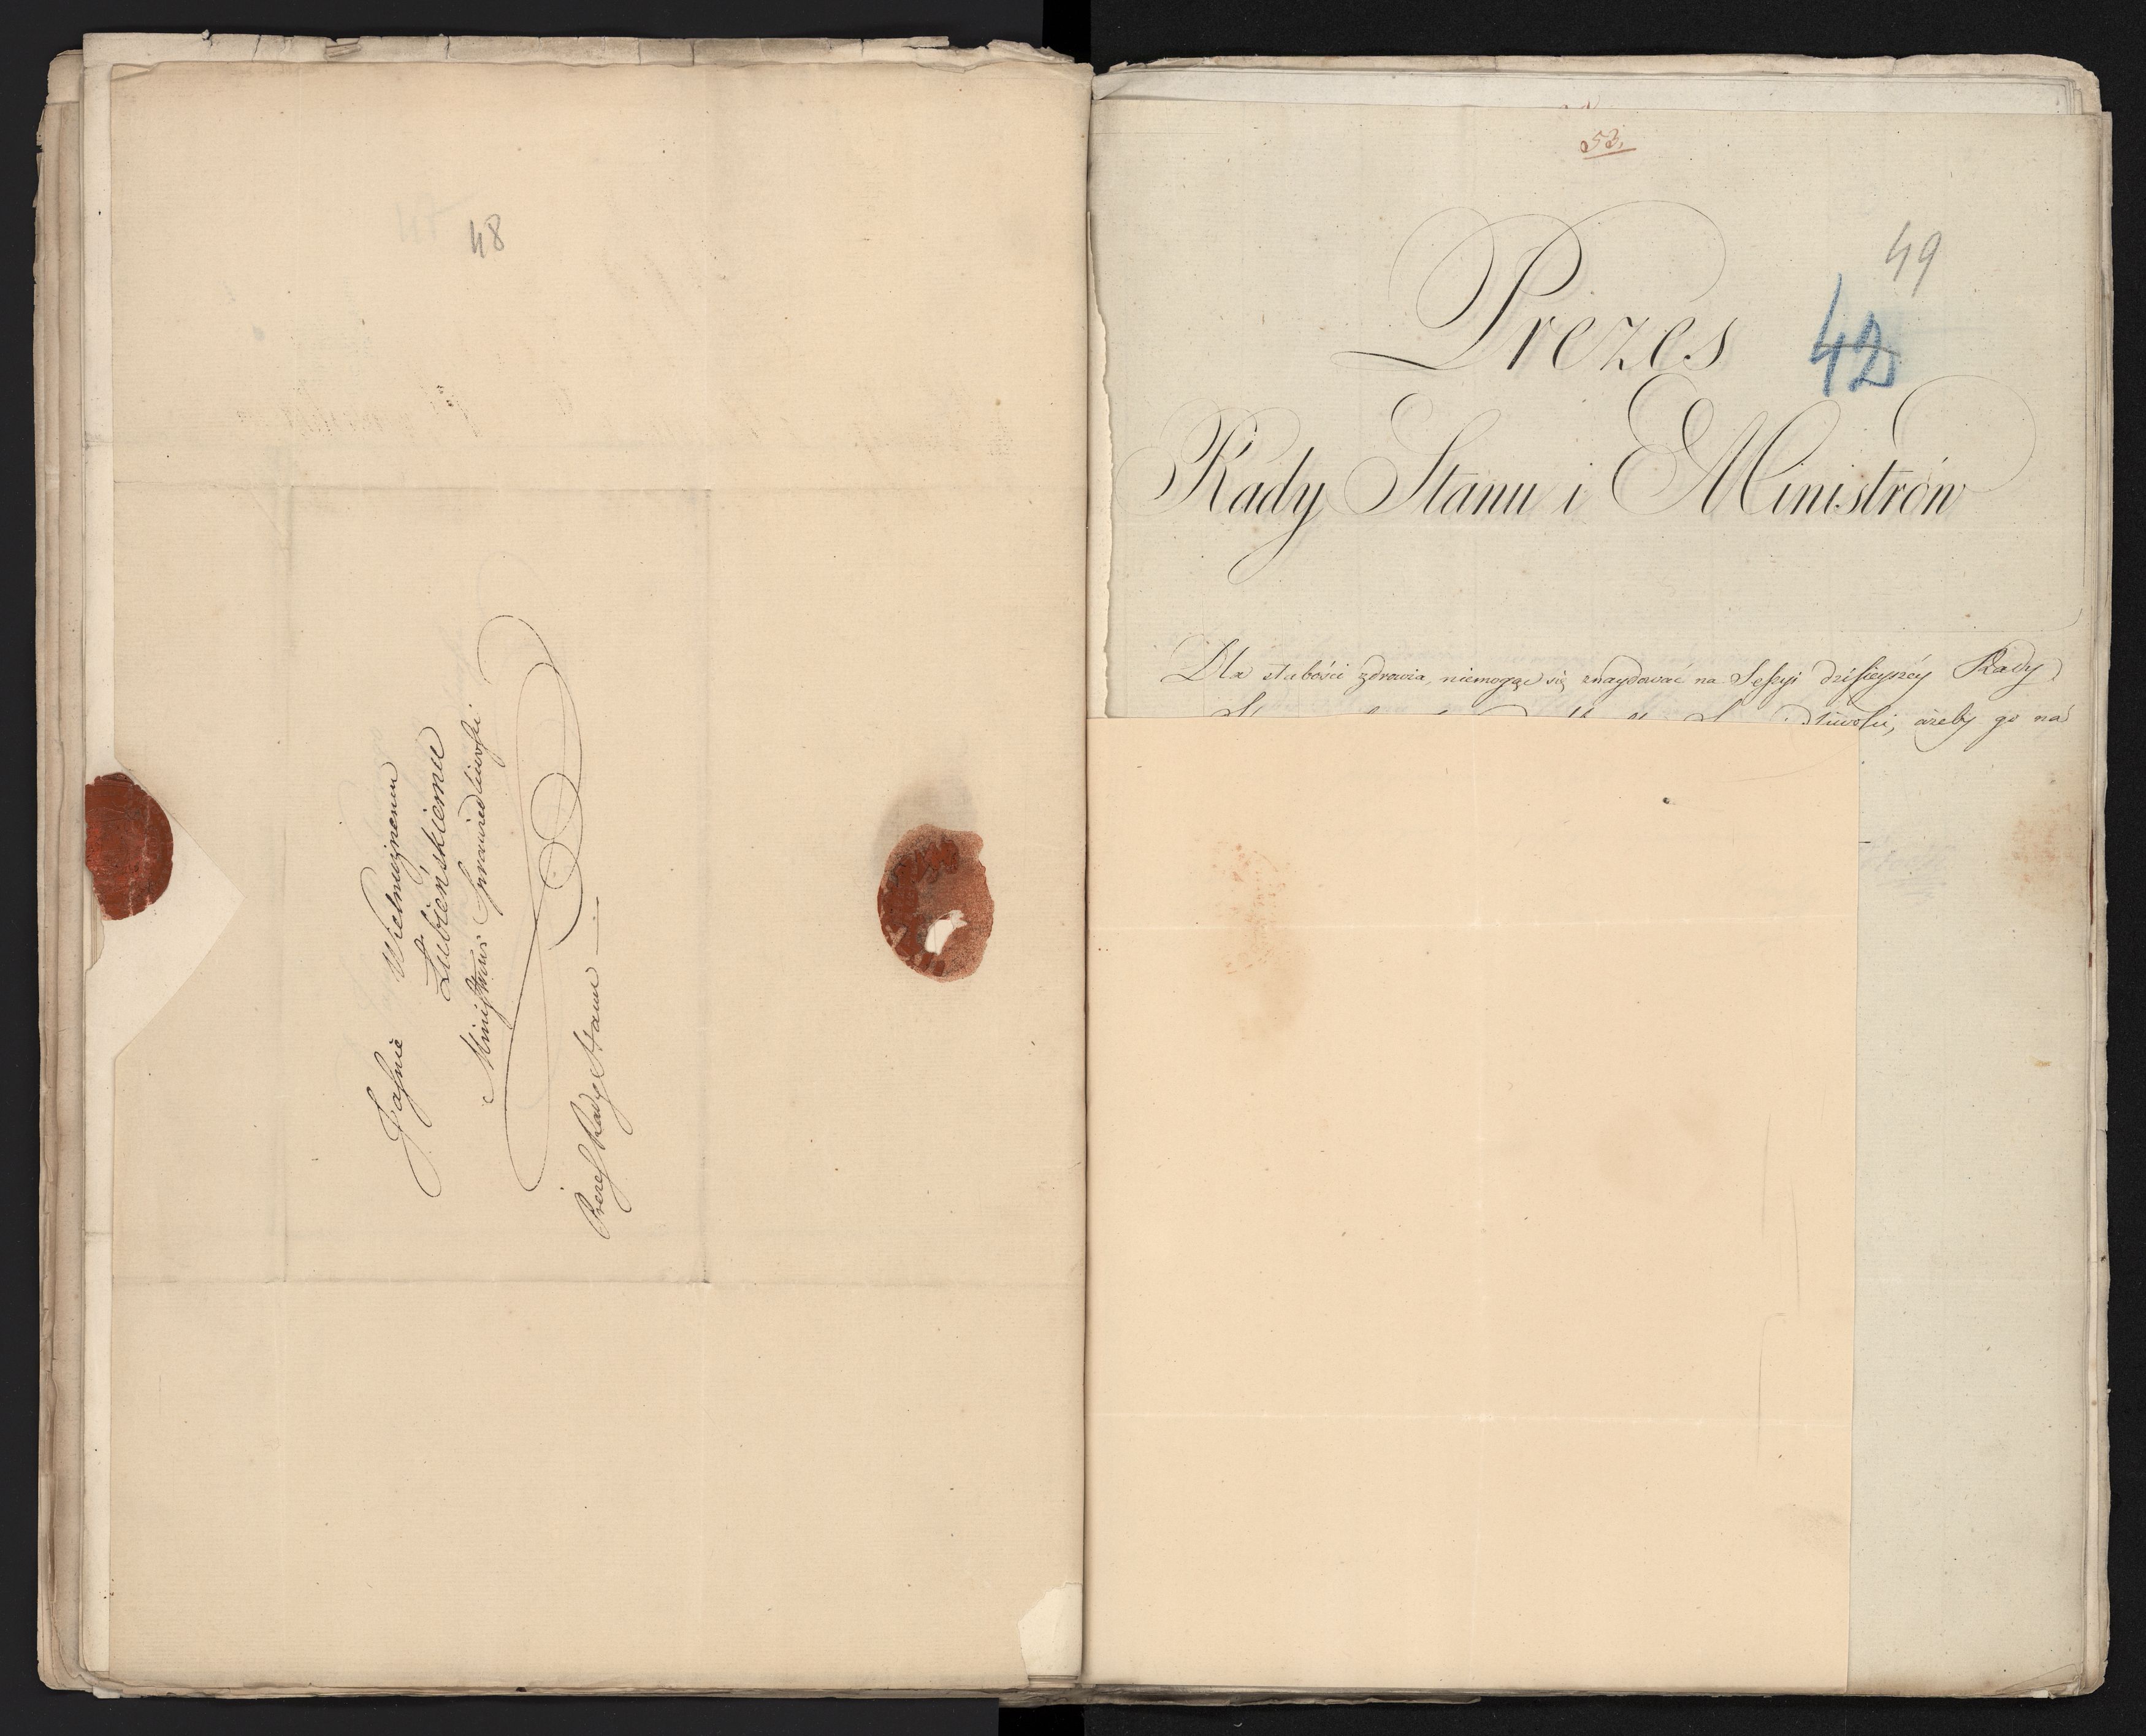 48
Jaśnie Wielmożnemu
Łubieńskiemu
Ministrowi Sprawiedliwości
Prezes Rady Stanu
53.
49
Prezes
42
Rady Stanu i Ministrów
Dla słabości zdrowia, niemogąc się znaydować na Sessyi dzisieyszéy Rady
ażeby go na